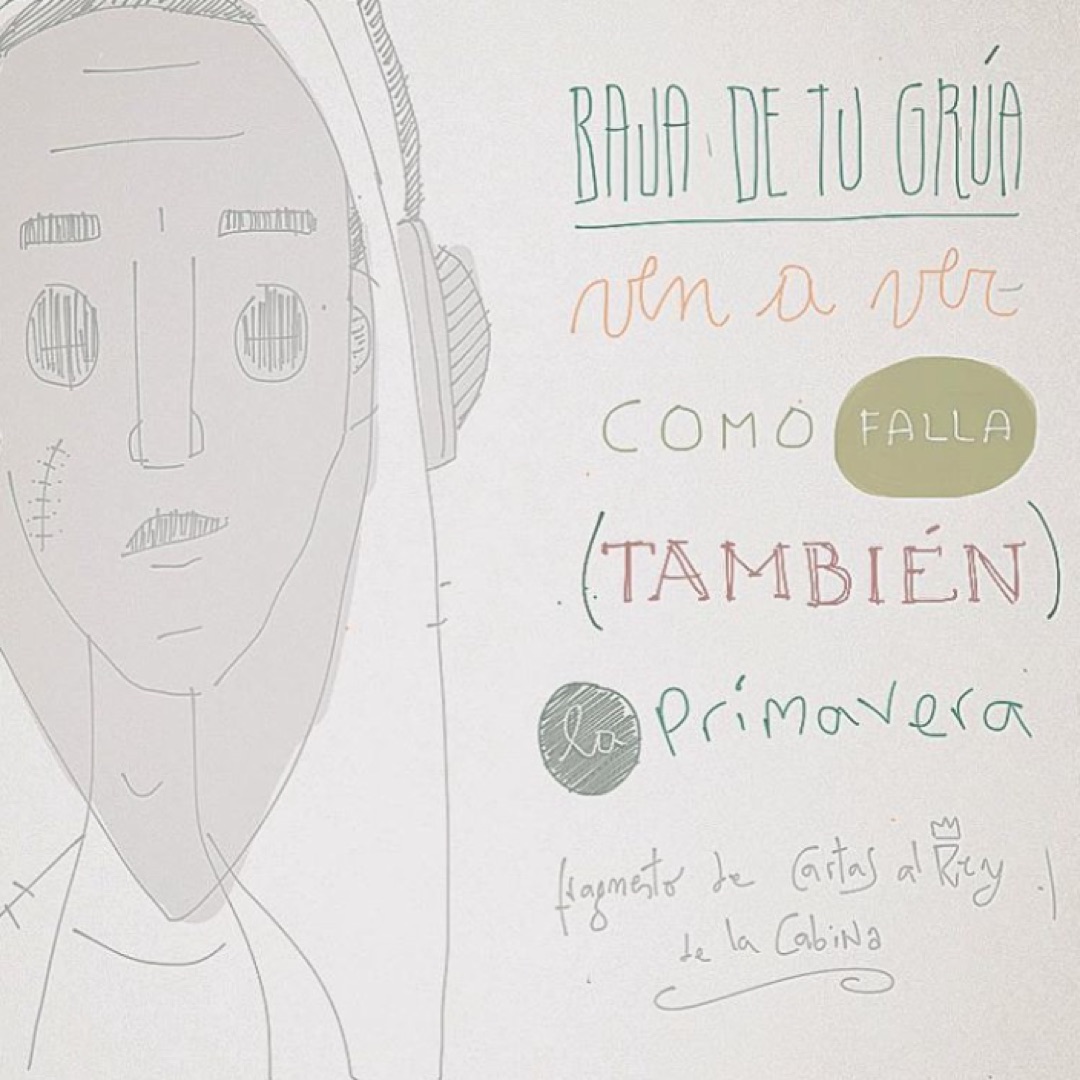 BAJA DE TU GRÚA
ven a ver
COMO FALLA
(TAMBIÉN)
la primavera
fragmento de Cartas al Rey
de la Cabina